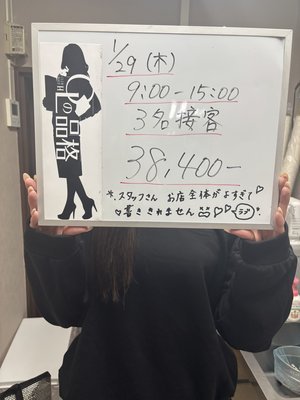 1/29 (木)
9:00-15:00
3名接客
38,400-
*、スタッフさん お店 全体がよすぎて♡
♡書ききれません
の品格